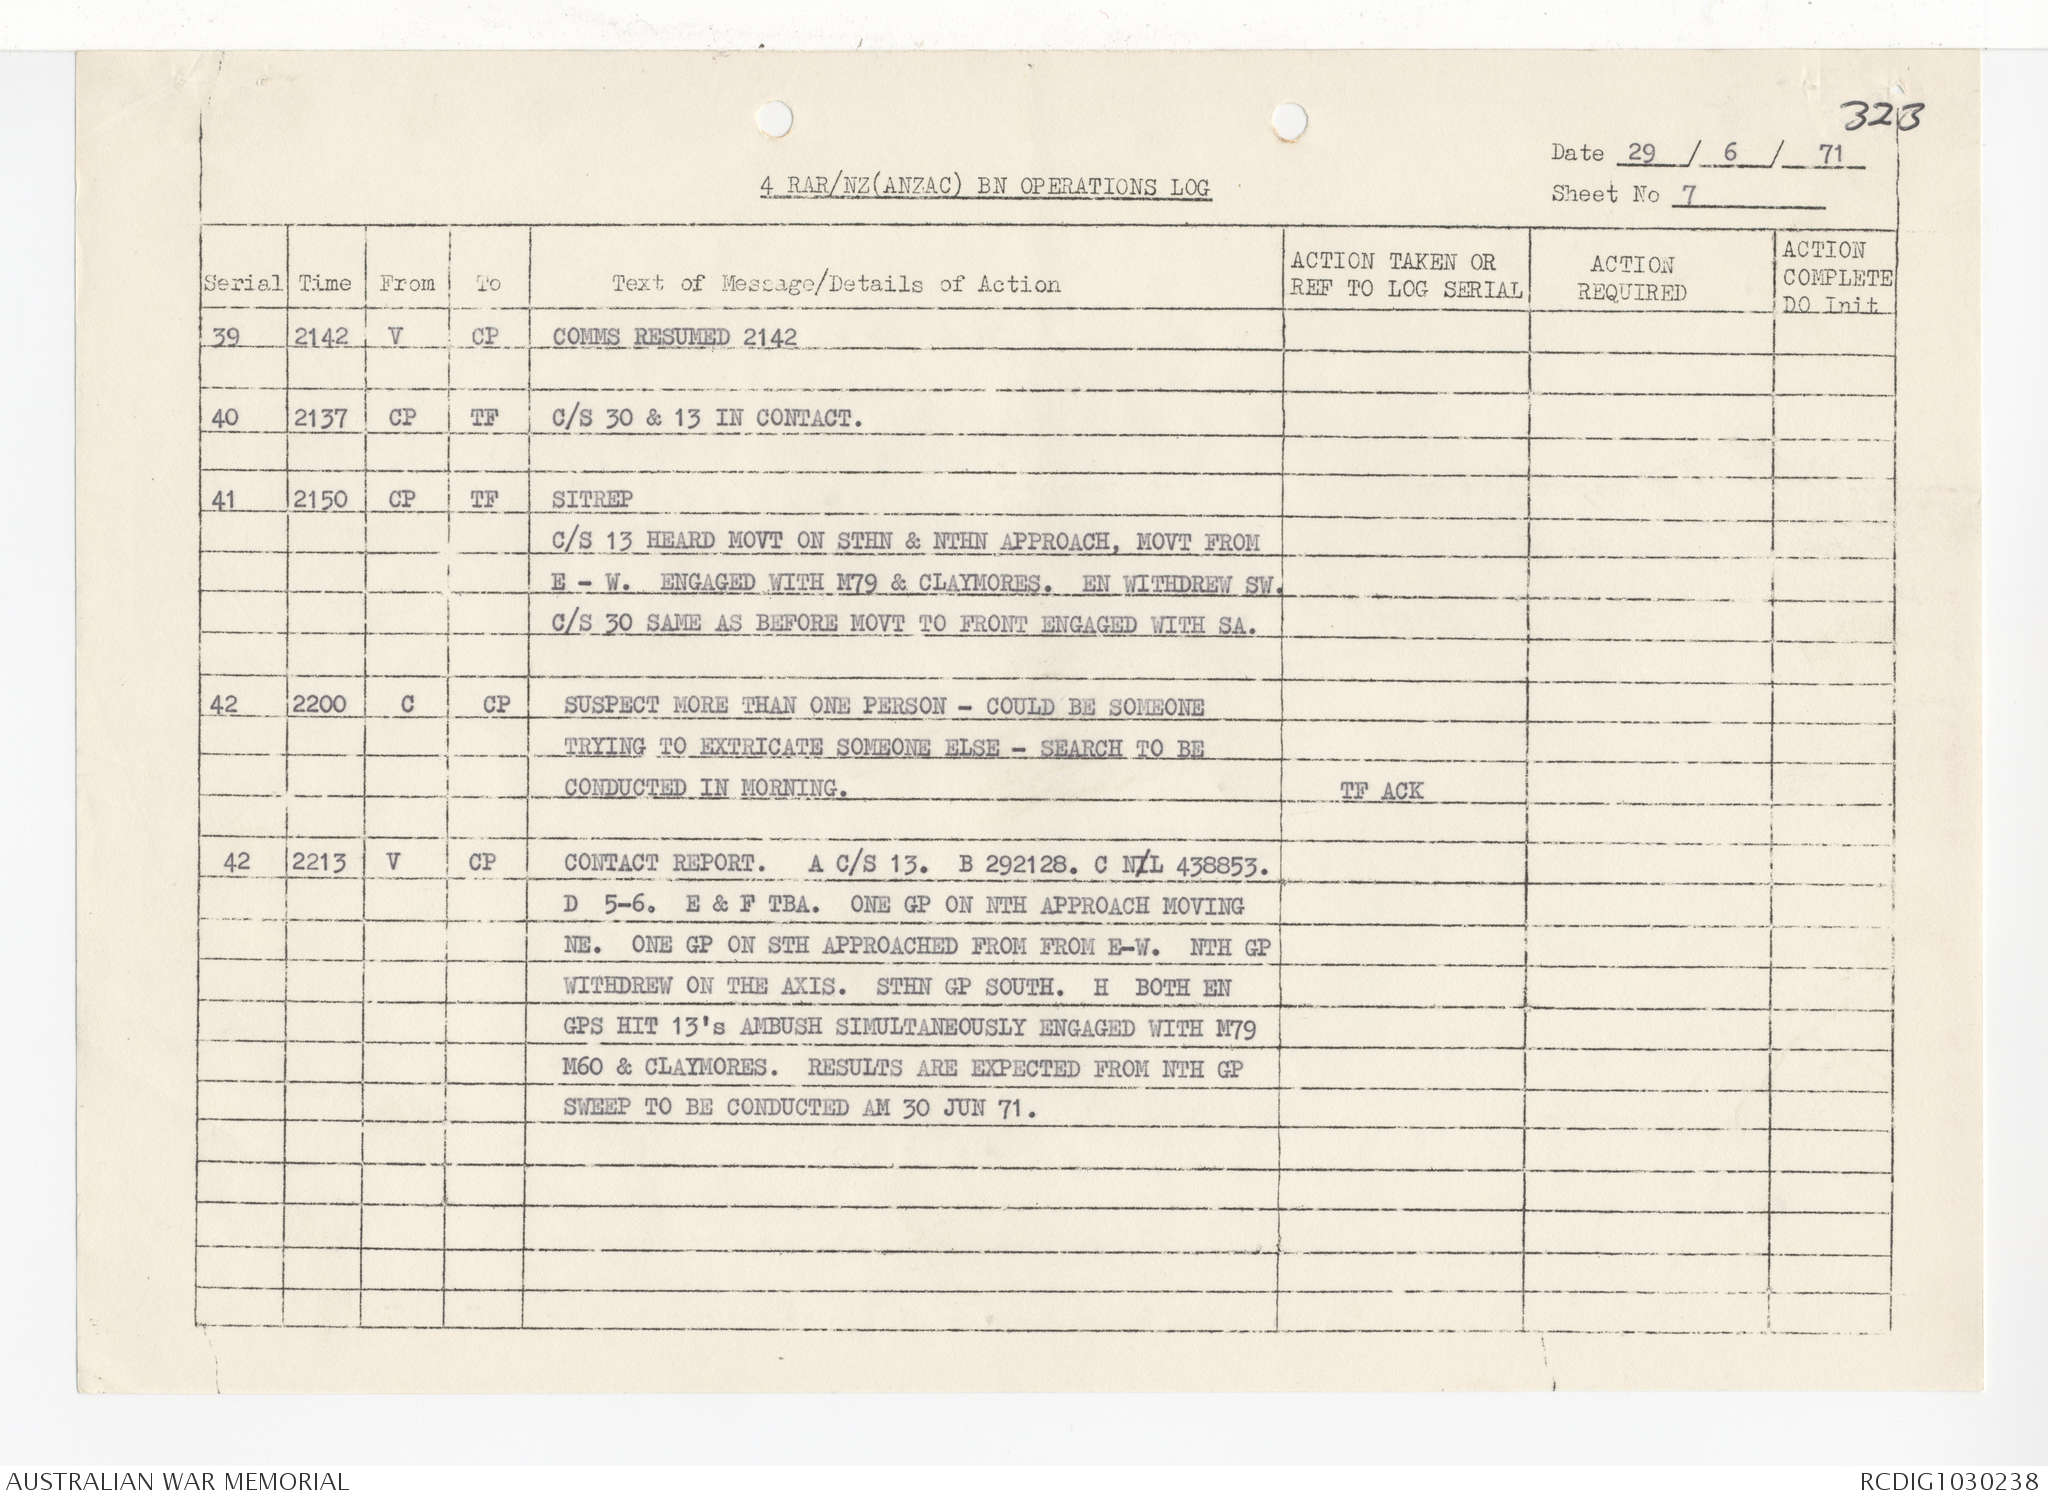 323
Date 29 / 6 / 71
4 RAR/NZ(ANZAC) BN OPERATIONS LOG
Sheet No 7
Serial Time From To Text of Message/Details of Action ACTION TAKEN OR REF TO LOG SERIAL ACTION REQUIRED ACTION COMPLETE DO Init
39 2142 V CP COMMS RESUMED 2142
40 2137 CP TF C/S 30 & 13 IN CONTACT.
41 2150 CP TF SITREP
C/S 13 HEARD MOVT ON STHN & NTHN APPROACH, MOVT FROM
E - W. ENGAGED WITH M79 & CLAYMORES. EN WITHDREW SW.
C/S 30 SAME AS BEFORE MOVT TO FRONT ENGAGED WITH SA.
42 2200 C CP SUSPECT MORE THAN ONE PERSON - COULD BE SOMEONE
TRYING TO EXTRICATE SOMEONE ELSE - SEARCH TO BE
CONDUCTED IN MORNING. TF ACK
42 2213 V CP CONTACT REPORT. A C/S 13. B 292128. C N/L 438853.
D 5-6. E & F TBA. ONE GP ON NTH APPROACH MOVING
NE. ONE GP ON STH APPROACHED FROM FROM E-W. NTH GP
WITHDREW ON THE AXIS. STHN GP SOUTH. H BOTH EN
GPS HIT 13's AMBUSH SIMULTANEOUSLY ENGAGED WITH M79
M60 & CLAYMORES. RESULTS ARE EXPECTED FROM NTH GP
SWEEP TO BE CONDUCTED AM 30 JUN 71.
AUSTRALIAN WAR MEMORIAL RCDIG1030238